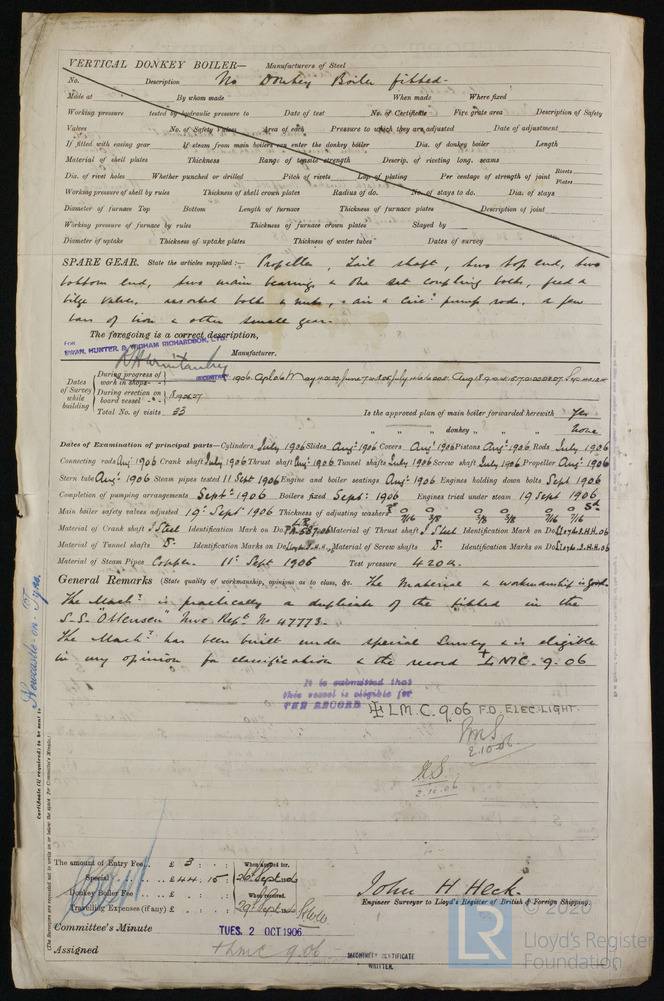 VERTICAL DONKEY BOILER— Manufacturers of Steel
No. Description No Donkey Boiler fitted-
Made at By whom made When made Where fixed
Working pressure tested by hydraulic pressure to Date of test No. of Certificate Fire grate area Description of Safety
Valves No. of Safety Valves Area of each Pressure to which they are adjusted Date of adjustment
If fitted with easing gear If steam from main boilers can enter the donkey boiler Dia. of donkey boiler Length
Material of shell plates Thickness Range of tensile strength Descrip. of riveting long. seams
Dia. of rivet holes Whether punched or drilled Pitch of rivets Lap of plating Per centage of strength of joint Rivets Plates
Working pressure of shell by rules Thickness of shell crown plates Radius of do. No. of stays to do. Dia. of stays
Diameter of furnace Top Bottom Length of furnace Thickness of furnace plates Description of joint
Working pressure of furnace by rules Thickness of furnace crown plates Stayed by
Diameter of uptake Thickness of uptake plates Thickness of water tubes Dates of survey
SPARE GEAR. State the articles supplied:— Propeller, Tail shaft, two top end, two
bottom end, two main bearing & one set coupling bolts, feed &
bilge valves, assorted bolts & nuts, air & circ. pump rods, a few
bars of iron & other small gear.
The foregoing is a correct description,
FOR SWAN, HUNTER, & WIGHAM RICHARDSON, LTD.
Manufacturer.
Dates of Survey while building
During progress of work in shops - -
During erection on board vessel - - -
Total No. of visits 33
Is the approved plan of main boiler forwarded herewith Yes
" " " donkey " " " None
Dates of Examination of principal parts—Cylinders July 1906 Slides Aug. 1906 Covers Aug. 1906 Pistons Aug. 1906 Rods July 1906
Connecting rods Aug 1906 Crank shaft July 1906 Thrust shaft Aug. 1906 Tunnel shafts July 1906 Screw shaft July 1906 Propeller Aug. 1906
Stern tube Aug. 1906 Steam pipes tested 11 Sept 1906 Engine and boiler seatings Aug. 1906 Engines holding down bolts Sept 1906
Completion of pumping arrangements Sept. 1906 Boilers fixed Sept. 1906 Engines tried under steam 19 Sept 1906
Main boiler safety valves adjusted 19. Sept 1906 Thickness of adjusting washers 7/16 3/8 3/8 3/8 7/16 7/16
Material of Crank shaft I. Steel Identification Mark on Do. Material of Thrust shaft I. Steel Identification Mark on Do. Lloyds J.H.H. 06
Material of Tunnel shafts S. Identification Marks on Do. Material of Screw shafts S. Identification Marks on Do. Lloyds J.H.H. 06
Material of Steam Pipes Copper. 11. Sept 1906 Test pressure 420 lb.
General Remarks (State quality of workmanship, opinions as to class, &c. The Material & workmanship is good.
The Mach.y is practically a duplicate of the fitted in the
S.S. "Ottensen" Nwc Rept. No 47773-
The Mach.y has been built under special Survey & is eligible
in my opinion for classification & the record + LMC. 9.06
It is submitted that
this vessel is eligible for
THE RECORD + L.M.C. 9.06 F.D. ELEC. LIGHT.
2.10.06
2.10.06
Certificate (if required) to be sent to Newcastle-on-Tyne.
(The Surveyors are requested not to write on or below the space for Committee's Minute.)
The amount of Entry Fee... £ 3 : :
Special ... £ 44 . 15 :
Donkey Boiler Fee ... £ : :
Travelling Expenses (if any) £ : :
When applied for. 26 Sept 06
When received. 29 Sept 06
John H Heck.
Engineer Surveyor to Lloyd's Register of British & Foreign Shipping.
Committee's Minute TUES. 2 OCT 1906
Assigned + LMC 9.06
MACHINERY CERTIFICATE
WRITTEN.
LR © 2020
Lloyd's Register
Foundation